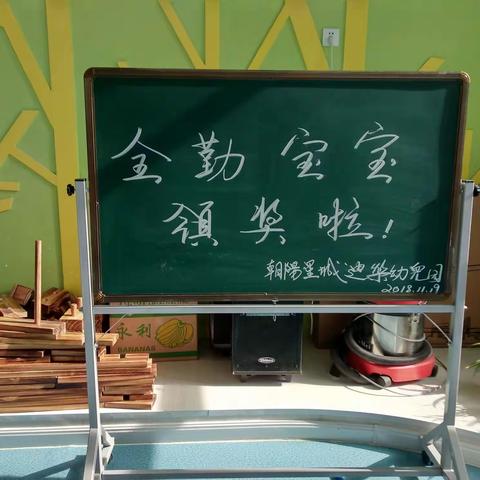 全勤宝宝
领奖啦!
朝陽星城迪樂幼兒园
2018.11.9
永利
BANANAS